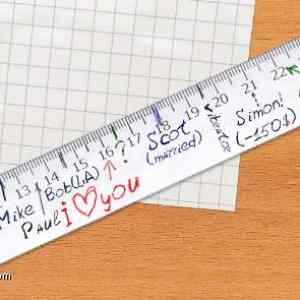 13 14 15 16 17 18 19 20 21 22
Mike
Paul
Bob(LA)
i ♡ you
?
Scot
(married)
Simon!
(-150$)
.com